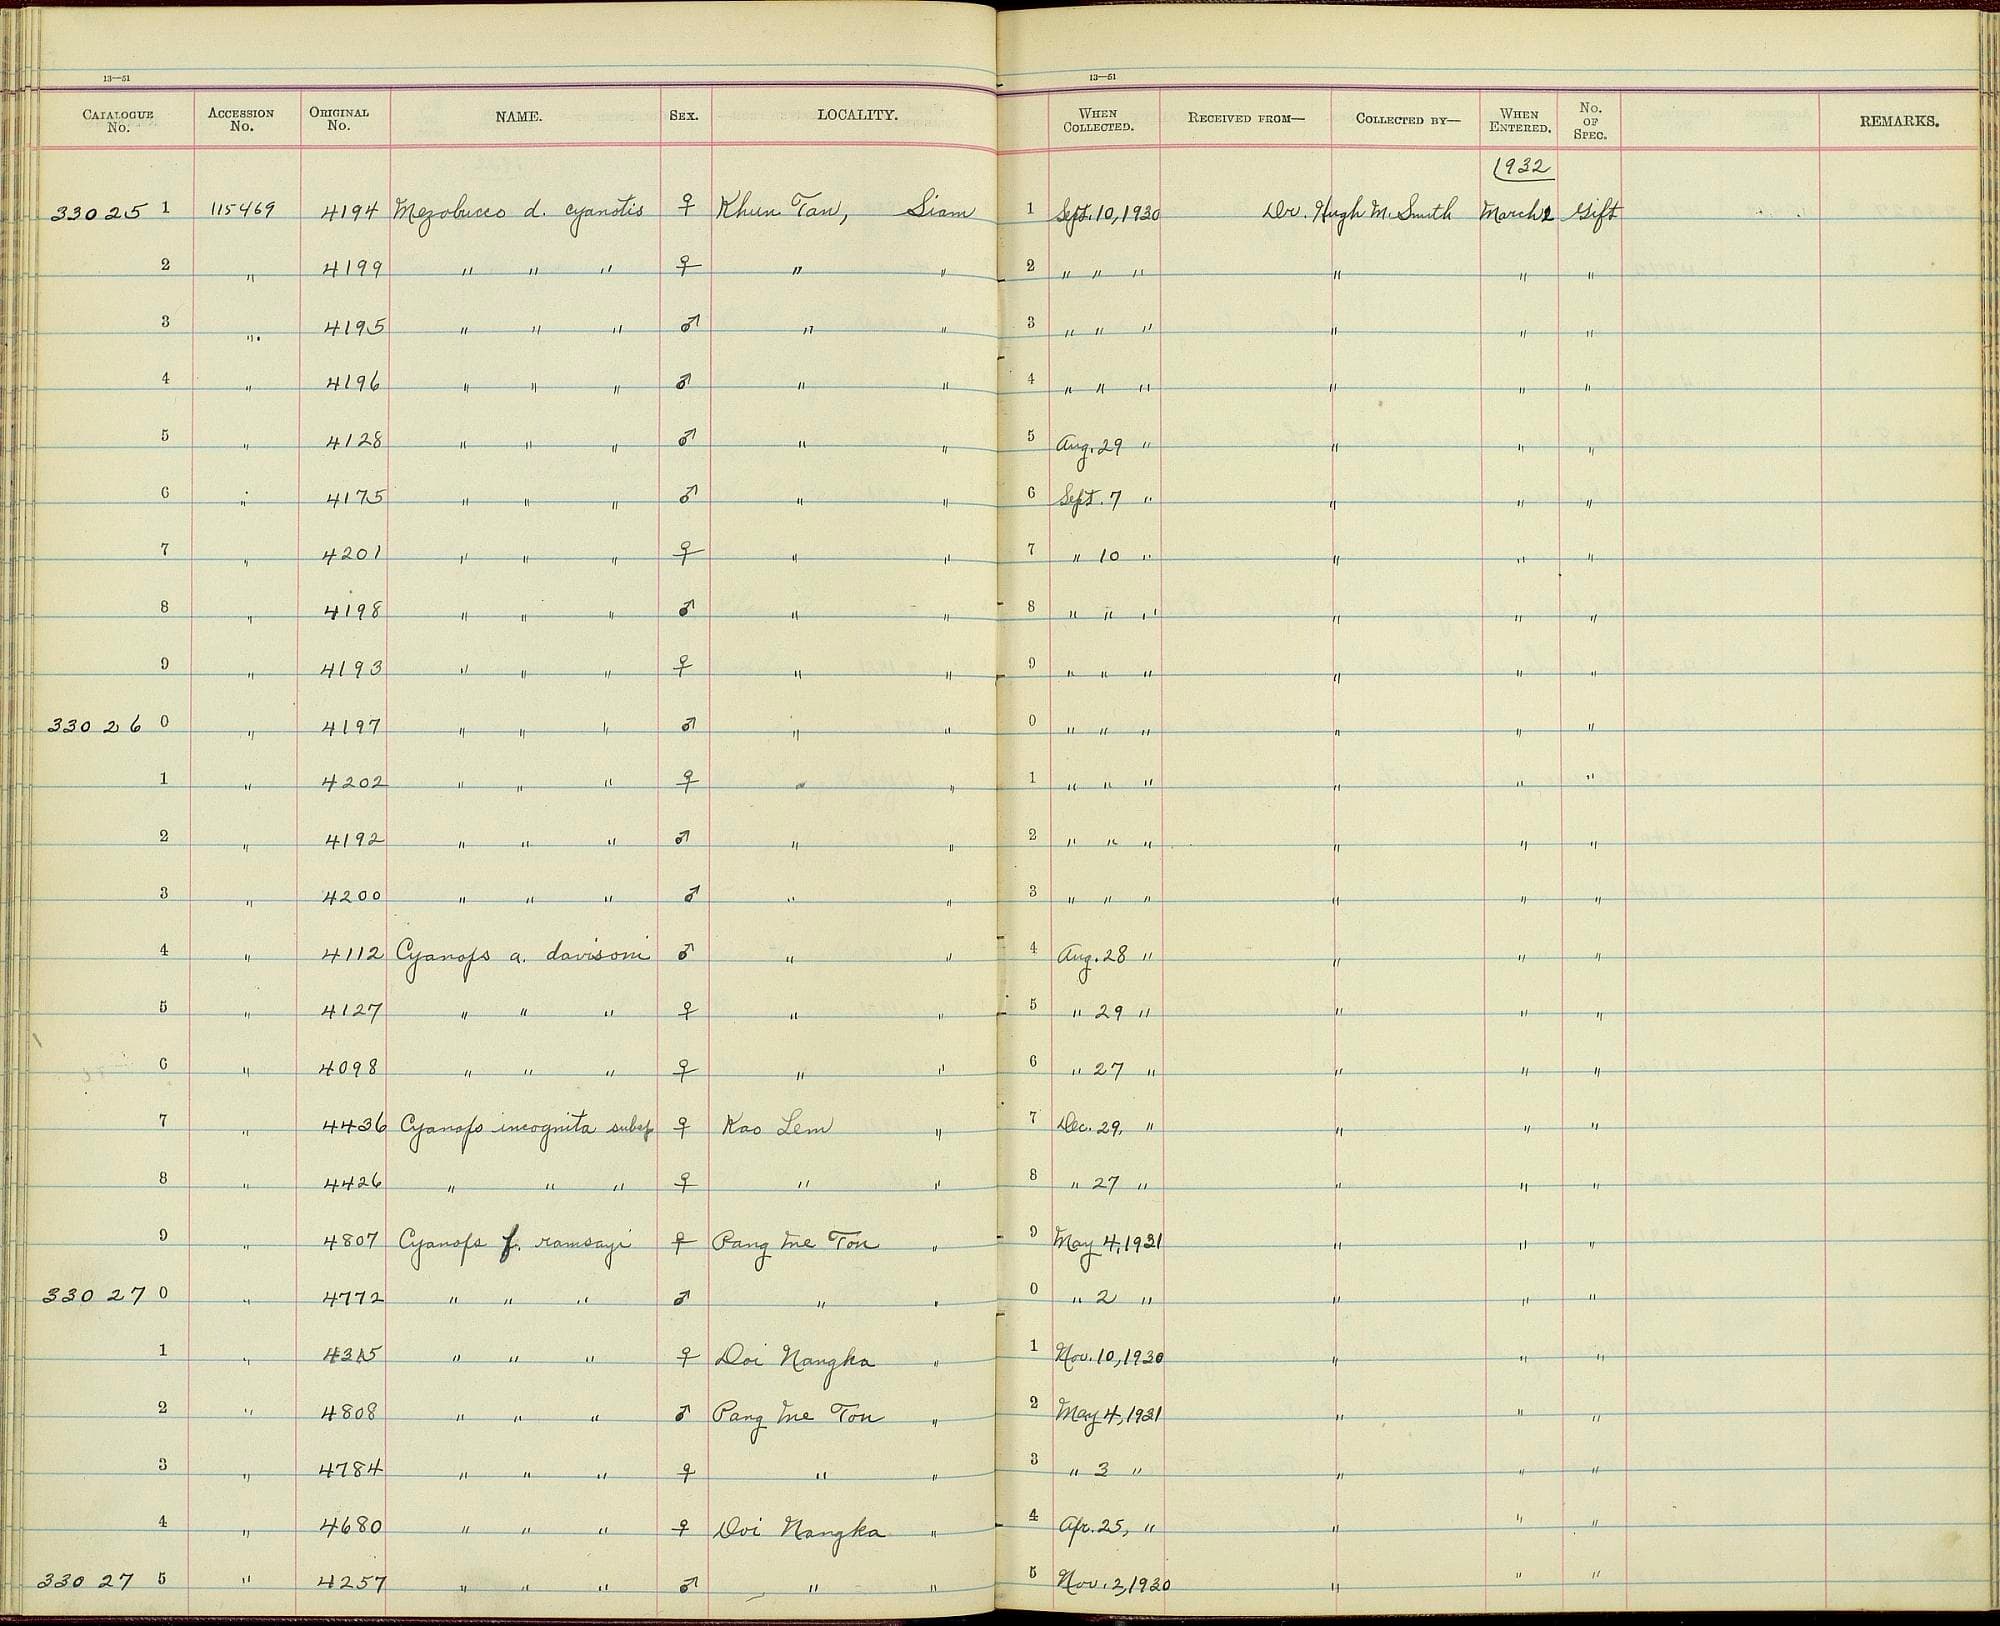 13—51 13—51
CATALOGUE No. ACCESSION No. ORIGINAL No. NAME. SEX. LOCALITY. WHEN COLLECTED. RECEIVED FROM— COLLECTED BY— WHEN ENTERED. No. OF SPEC. REMARKS.
1932
33025 1 115469 4194 Mezobucco d. cyanotis ♀ Khun Tan, Siam 1 Sept. 10, 1930 Dr. Hugh M. Smith March 2 Gift
2 " 4199 " " " ♀ " " 2 " " " " " "
3 " 4195 " " " ♂ " " 3 " " " " " "
4 " 4196 " " " ♂ " " 4 " " " " " "
5 " 4128 " " " ♂ " " 5 Aug. 29 " " " "
6 " 4175 " " " ♂ " " 6 Sept. 7 " " " "
7 " 4201 " " " ♀ " " 7 " 10 " " " "
8 " 4198 " " " ♂ " " 8 " " " " " "
9 " 4193 " " " ♀ " " 9 " " " " " "
33026 0 " 4197 " " " ♂ " " 0 " " " " " "
1 " 4202 " " " ♀ " " 1 " " " " " "
2 " 4192 " " " ♂ " " 2 " " " " " "
3 " 4200 " " " ♂ " " 3 " " " " " "
4 " 4112 Cyanops a. davisoni ♂ " " 4 Aug. 28 " " " "
5 " 4127 " " " ♀ " " 5 " 29 " " " "
6 " 4098 " " " ♀ " " 6 " 27 " " " "
7 " 4436 Cyanops incognita subsp ♀ Kao Lem " 7 Dec. 29, " " " "
8 " 4426 " " " ♀ " " 8 " 27 " " " "
9 " 4807 Cyanops f. ramsayi ♀ Pang Me Ton " 9 May 4, 1931 " " "
33027 0 " 4772 " " " ♂ " " 0 " 2 " " " "
1 " " " " ♀ Doi Nangka " 1 Nov. 10, 1930 " " "
2 " 4808 " " " ♂ Pang Me Ton " 2 May 4, 1931 " " "
3 " 4784 " " " ♀ " " 3 " 3 " " " "
4 " 4680 " " " ♀ Doi Nangka " 4 Apr. 25, " " " "
33027 5 " 4257 " " " ♂ " " 5 Nov. 2, 1930 " " "